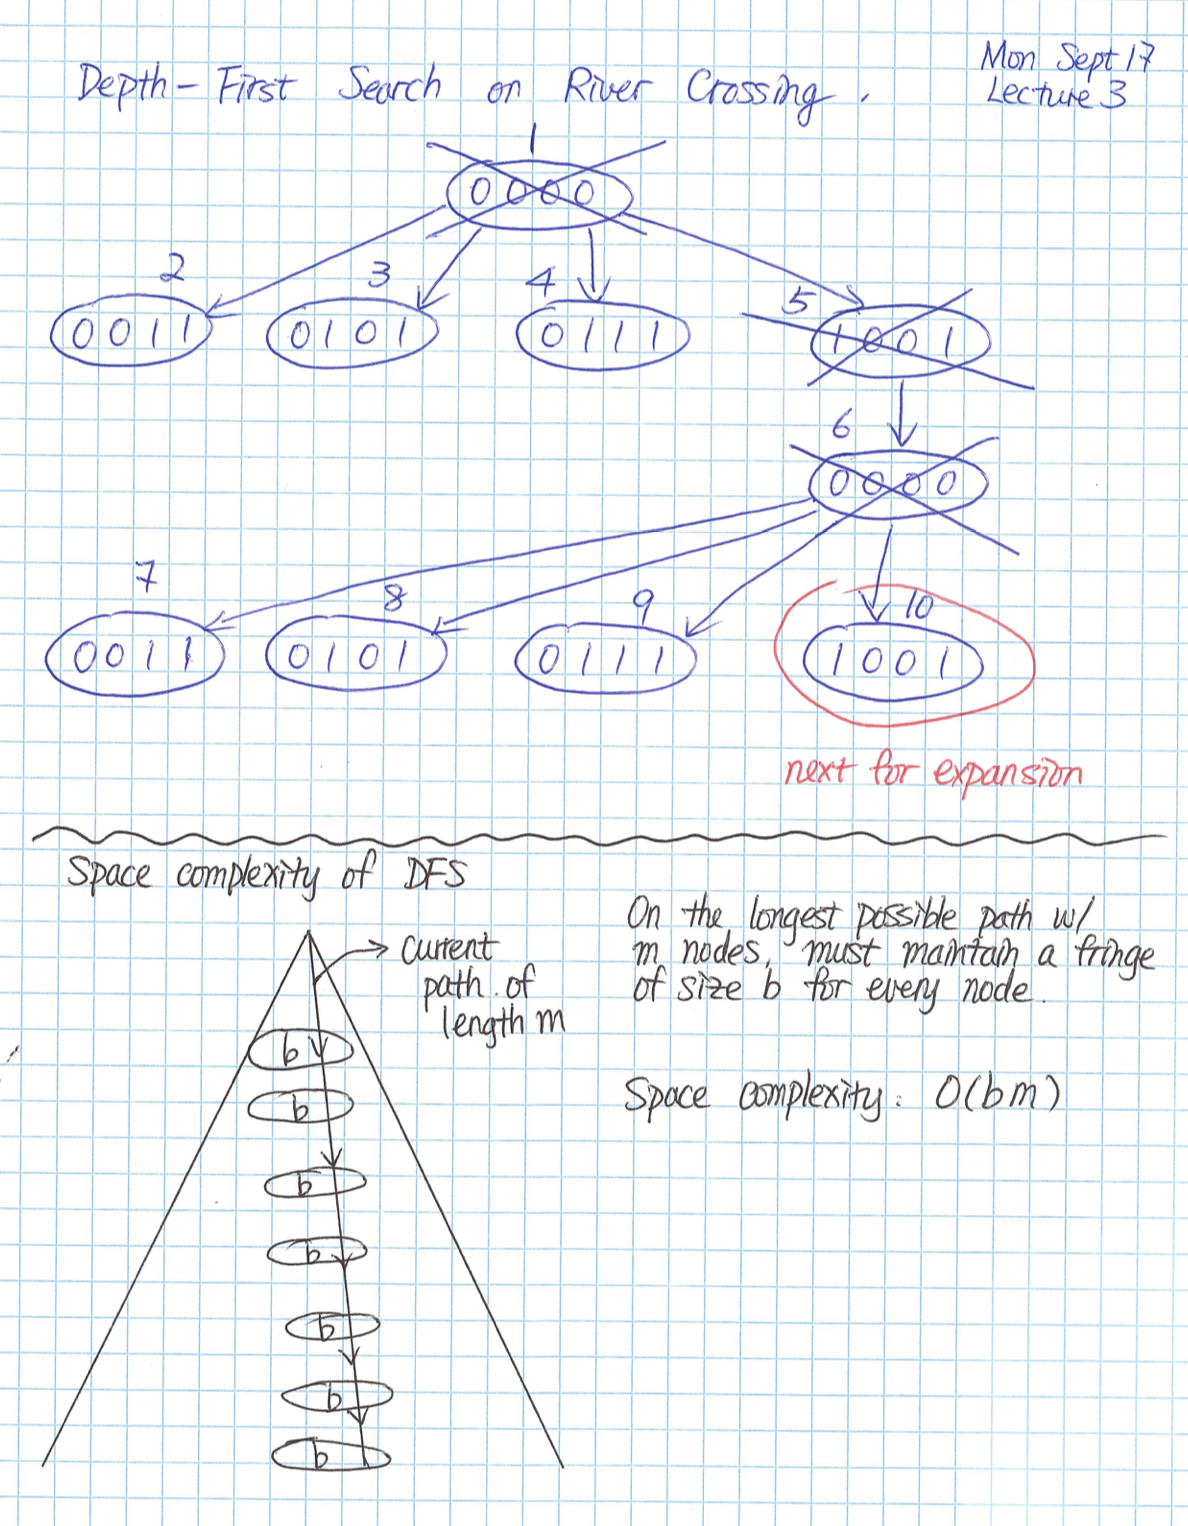 Mon Sept 17
Depth-First Search on River Crossing.
Lecture 3
1
0 0 0 0
2 3 4 5
0 0 1 1 0 1 0 1 0 1 1 1 1 0 0 1
6
0 0 0 0
7 8 9 10
0 0 1 1 0 1 0 1 0 1 1 1 1 0 0 1
next for expansion
Space complexity of DFS
current
path of
length m
b
b
b
b
b
b
b
On the longest possible path w/
m nodes, must maintain a fringe
of size b for every node.
Space complexity: O(bm)